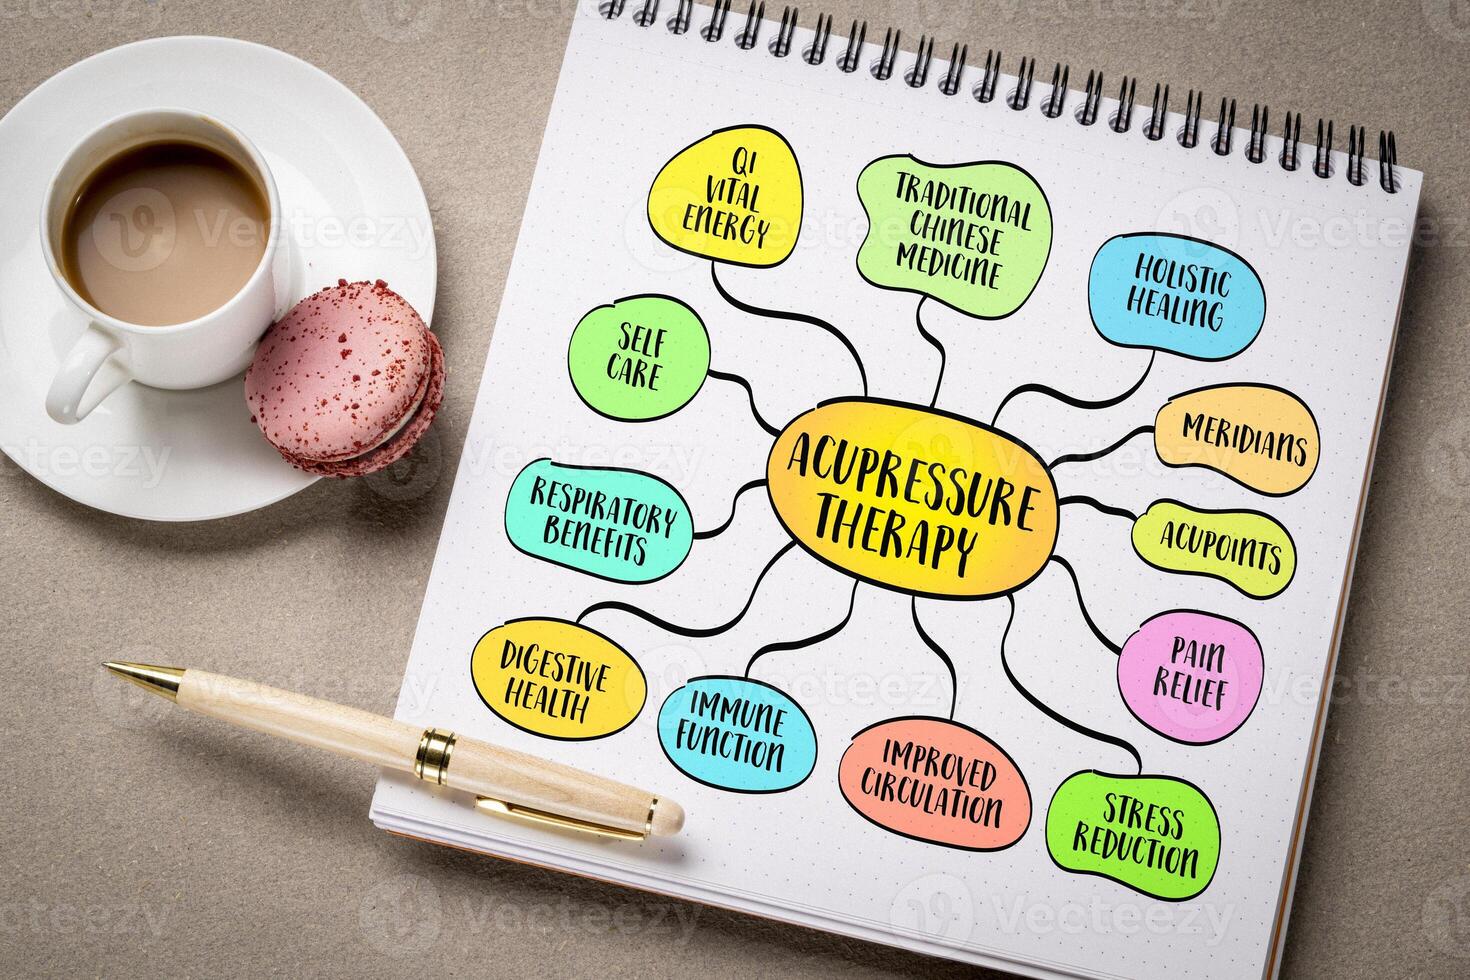 QI
VITAL
ENERGY
TRADITIONAL
CHINESE
MEDICINE
HOLISTIC
HEALING
SELF
CARE
MERIDIANS
ACUPRESSURE
THERAPY
RESPIRATORY
BENEFITS
ACUPOINTS
PAIN
RELIEF
DIGESTIVE
HEALTH
IMMUNE
FUNCTION
IMPROVED
CIRCULATION
STRESS
REDUCTION
Vecteezy
Vecteezy
Vecteezy
Vecteezy
Vecteezy
Vecteezy